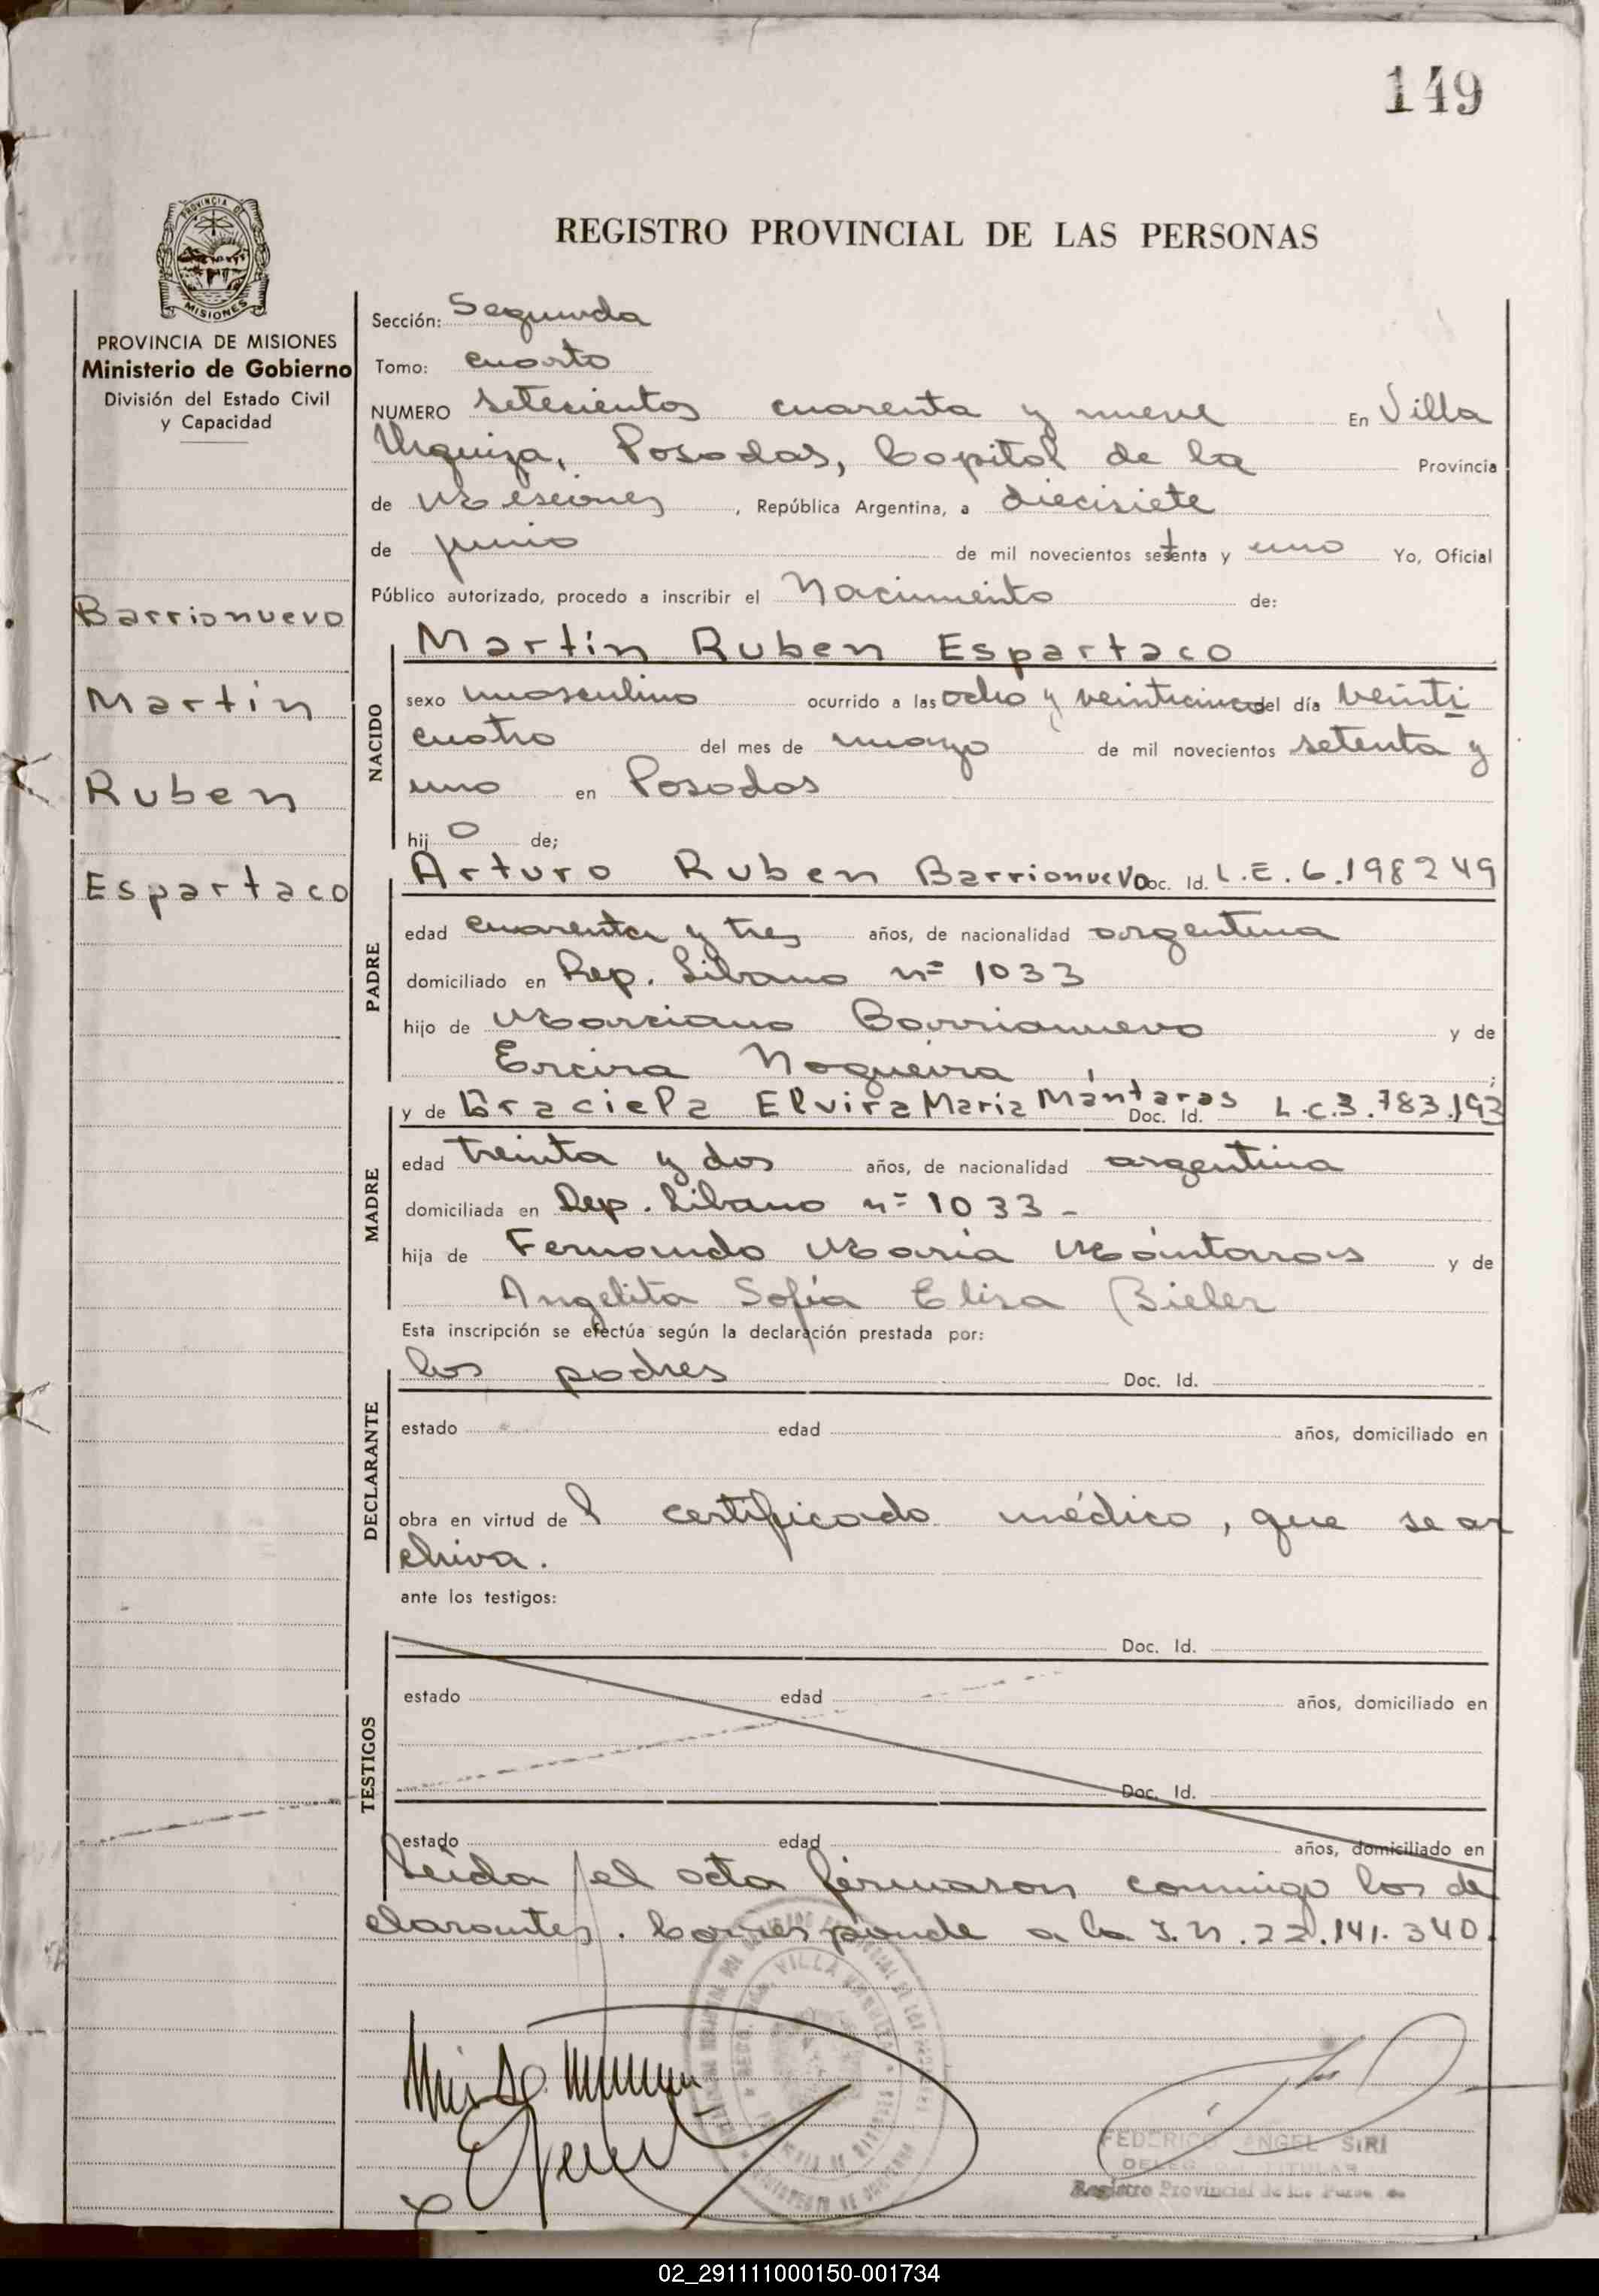 149
PROVINCIA DE
MISIONES
REGISTRO PROVINCIAL DE LAS PERSONAS
PROVINCIA DE MISIONES
Ministerio de Gobierno
División del Estado Civil
y Capacidad
Barrionuevo
Martín
Ruben
Espartaco
Sección: Segunda
Tomo: cuarto
NUMERO setecientos cuarenta y nueve En Villa
Urquiza, Posadas, Capital de la Provincia
de Misiones, República Argentina, a diecisiete
de junio de mil novecientos setenta y uno Yo, Oficial
Público autorizado, procedo a inscribir el Nacimiento de:
NACIDO
Martín Ruben Espartaco
sexo masculino ocurrido a las ocho y veinticinco del día veinti
cuatro del mes de mayo de mil novecientos setenta y
uno en Posadas
hij o de;
PADRE
Arturo Ruben Barrionuevo Doc. Id. L.E. 6.198249
edad cuarenta y tres años, de nacionalidad argentina
domiciliado en Rep. Libano nº 1033
hijo de Marciano Barrionuevo y de
Ercira Nogueira
MADRE
y de Graciela Elvira María Mántaras Doc. Id. L.C.3.783.193
edad treinta y dos años, de nacionalidad argentina
domiciliada en Rep. Libano nº 1033 -
hija de Fernando María Mántaras y de
Angelita Sofía Elisa Bieler
Esta inscripción se efectúa según la declaración prestada por:
DECLARANTE
los padres Doc. Id.
estado edad años, domiciliado en
obra en virtud de l certificado médico, que se ar
chiva.
ante los testigos:
TESTIGOS
Doc. Id.
estado edad años, domiciliado en
Doc. Id.
estado edad años, domiciliado en
Leída el acta firmaron conmigo los de
clarantes. Corresponde a la I.N. 22.141.340.
VILLA URQUIZA
FEDERICO ANGEL SIRI
TITULAR
Registro Provincial de las
02_291111000150-001734